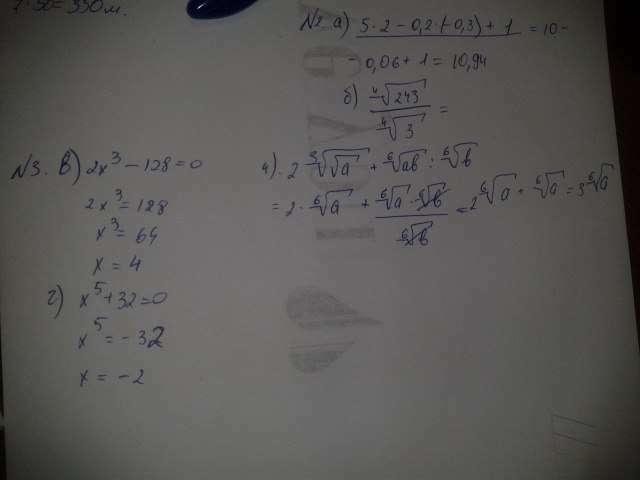 7·50=350м.
N2 а) 5·2-0,2·(-0,3)+1 = 10-
- 0,06+1 = 10,94
б) ⁴√243 / ⁴√3 =
N3. в) 2x³-128=0
2x³=128
x³=64
x=4
г) x⁵+32=0
x⁵=-32
x=-2
4). 2 ³√√a + ⁶√ab : ⁶√b
= 2·⁶√a + ⁶√a·⁶√b / ⁶√b = 2⁶√a + ⁶√a = 3⁶√a